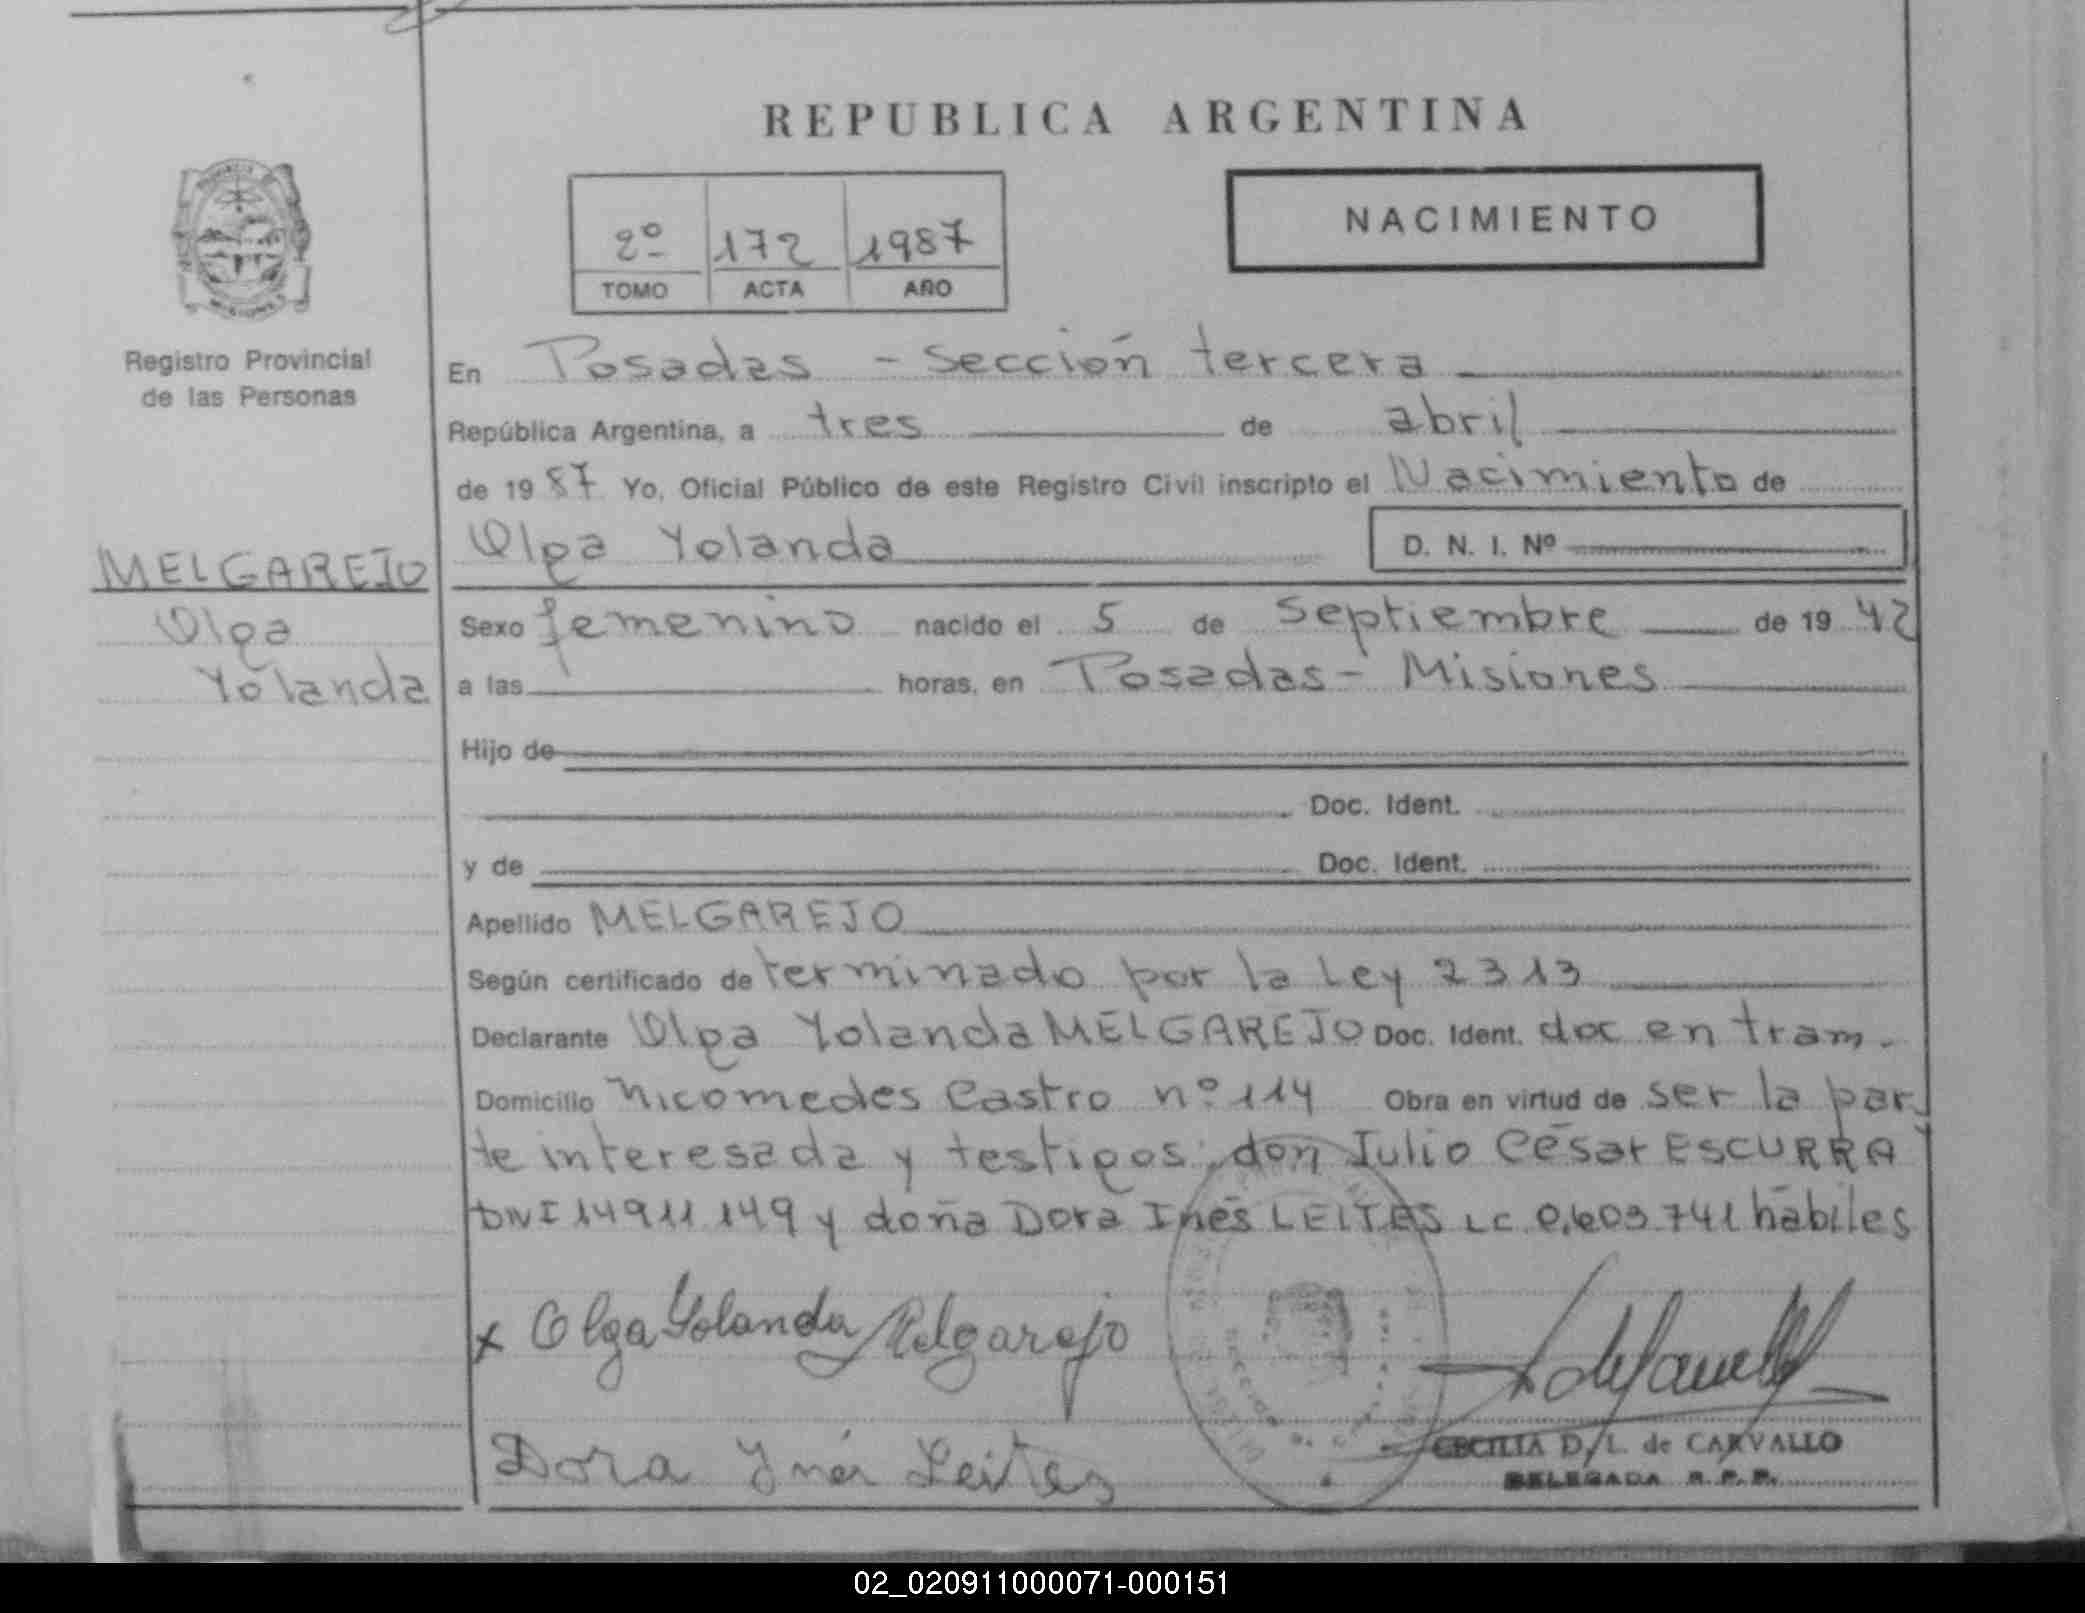 REPUBLICA ARGENTINA
2º 172 1987
TOMO ACTA AÑO
NACIMIENTO
Registro Provincial
de las Personas
MELGAREJO
Olga
Yolanda
En Posadas - Sección tercera
República Argentina, a tres de abril
de 1987 Yo, Oficial Público de este Registro Civil inscripto el Nacimiento de
Olga Yolanda D. N. I. Nº
Sexo femenino nacido el 5 de Septiembre de 1942
a las horas, en Posadas - Misiones
Hijo de
Doc. Ident.
y de Doc. Ident.
Apellido MELGAREJO
Según certificado de terminado por la Ley 2313
Declarante Olga Yolanda MELGAREJO Doc. Ident. doc en tram.
Domicilio Nicomedes Castro nº 114 Obra en virtud de ser la par
te interesada y testigos: don Julio César ESCURRA
DNI 14911149 y doña Dora Inés LEITES LC 0.603.741 hábiles
x Olga Yolanda Melgarejo
Dora Ynés Leites
CECILIA D. L. de CARVALLO
DELEGADA R. P. P.
02_020911000071-000151